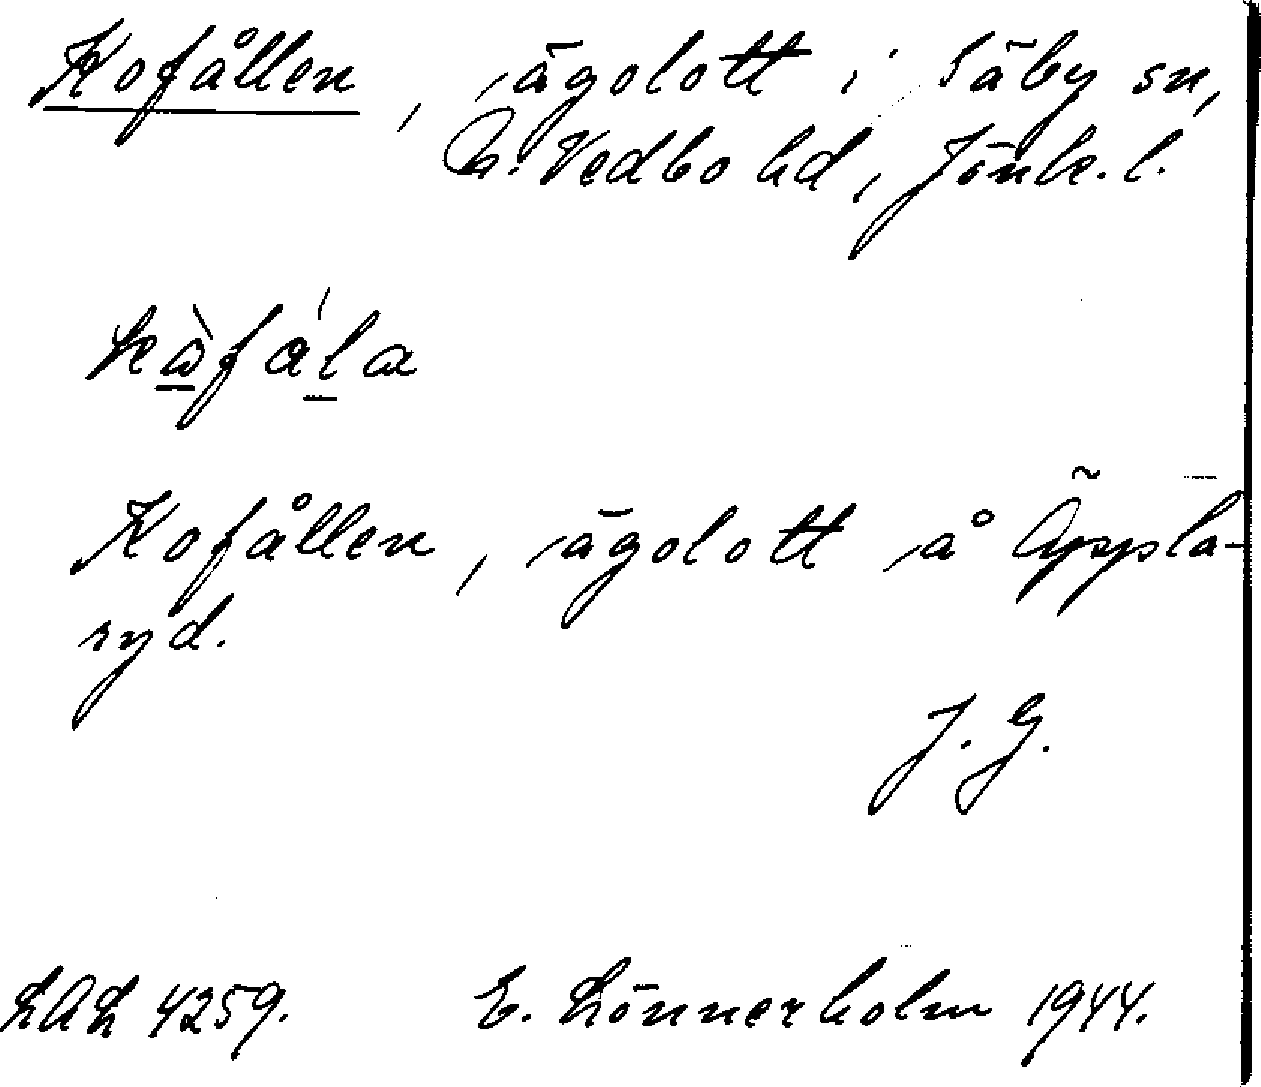 Kofållen, ägolott i Säby sn,
N. Vedbo hd, Jönk. l.
Kofållen, ägolott å Äppla-
ryd.
J. G.
LAL 4259. E. Lönnerholm 1944.